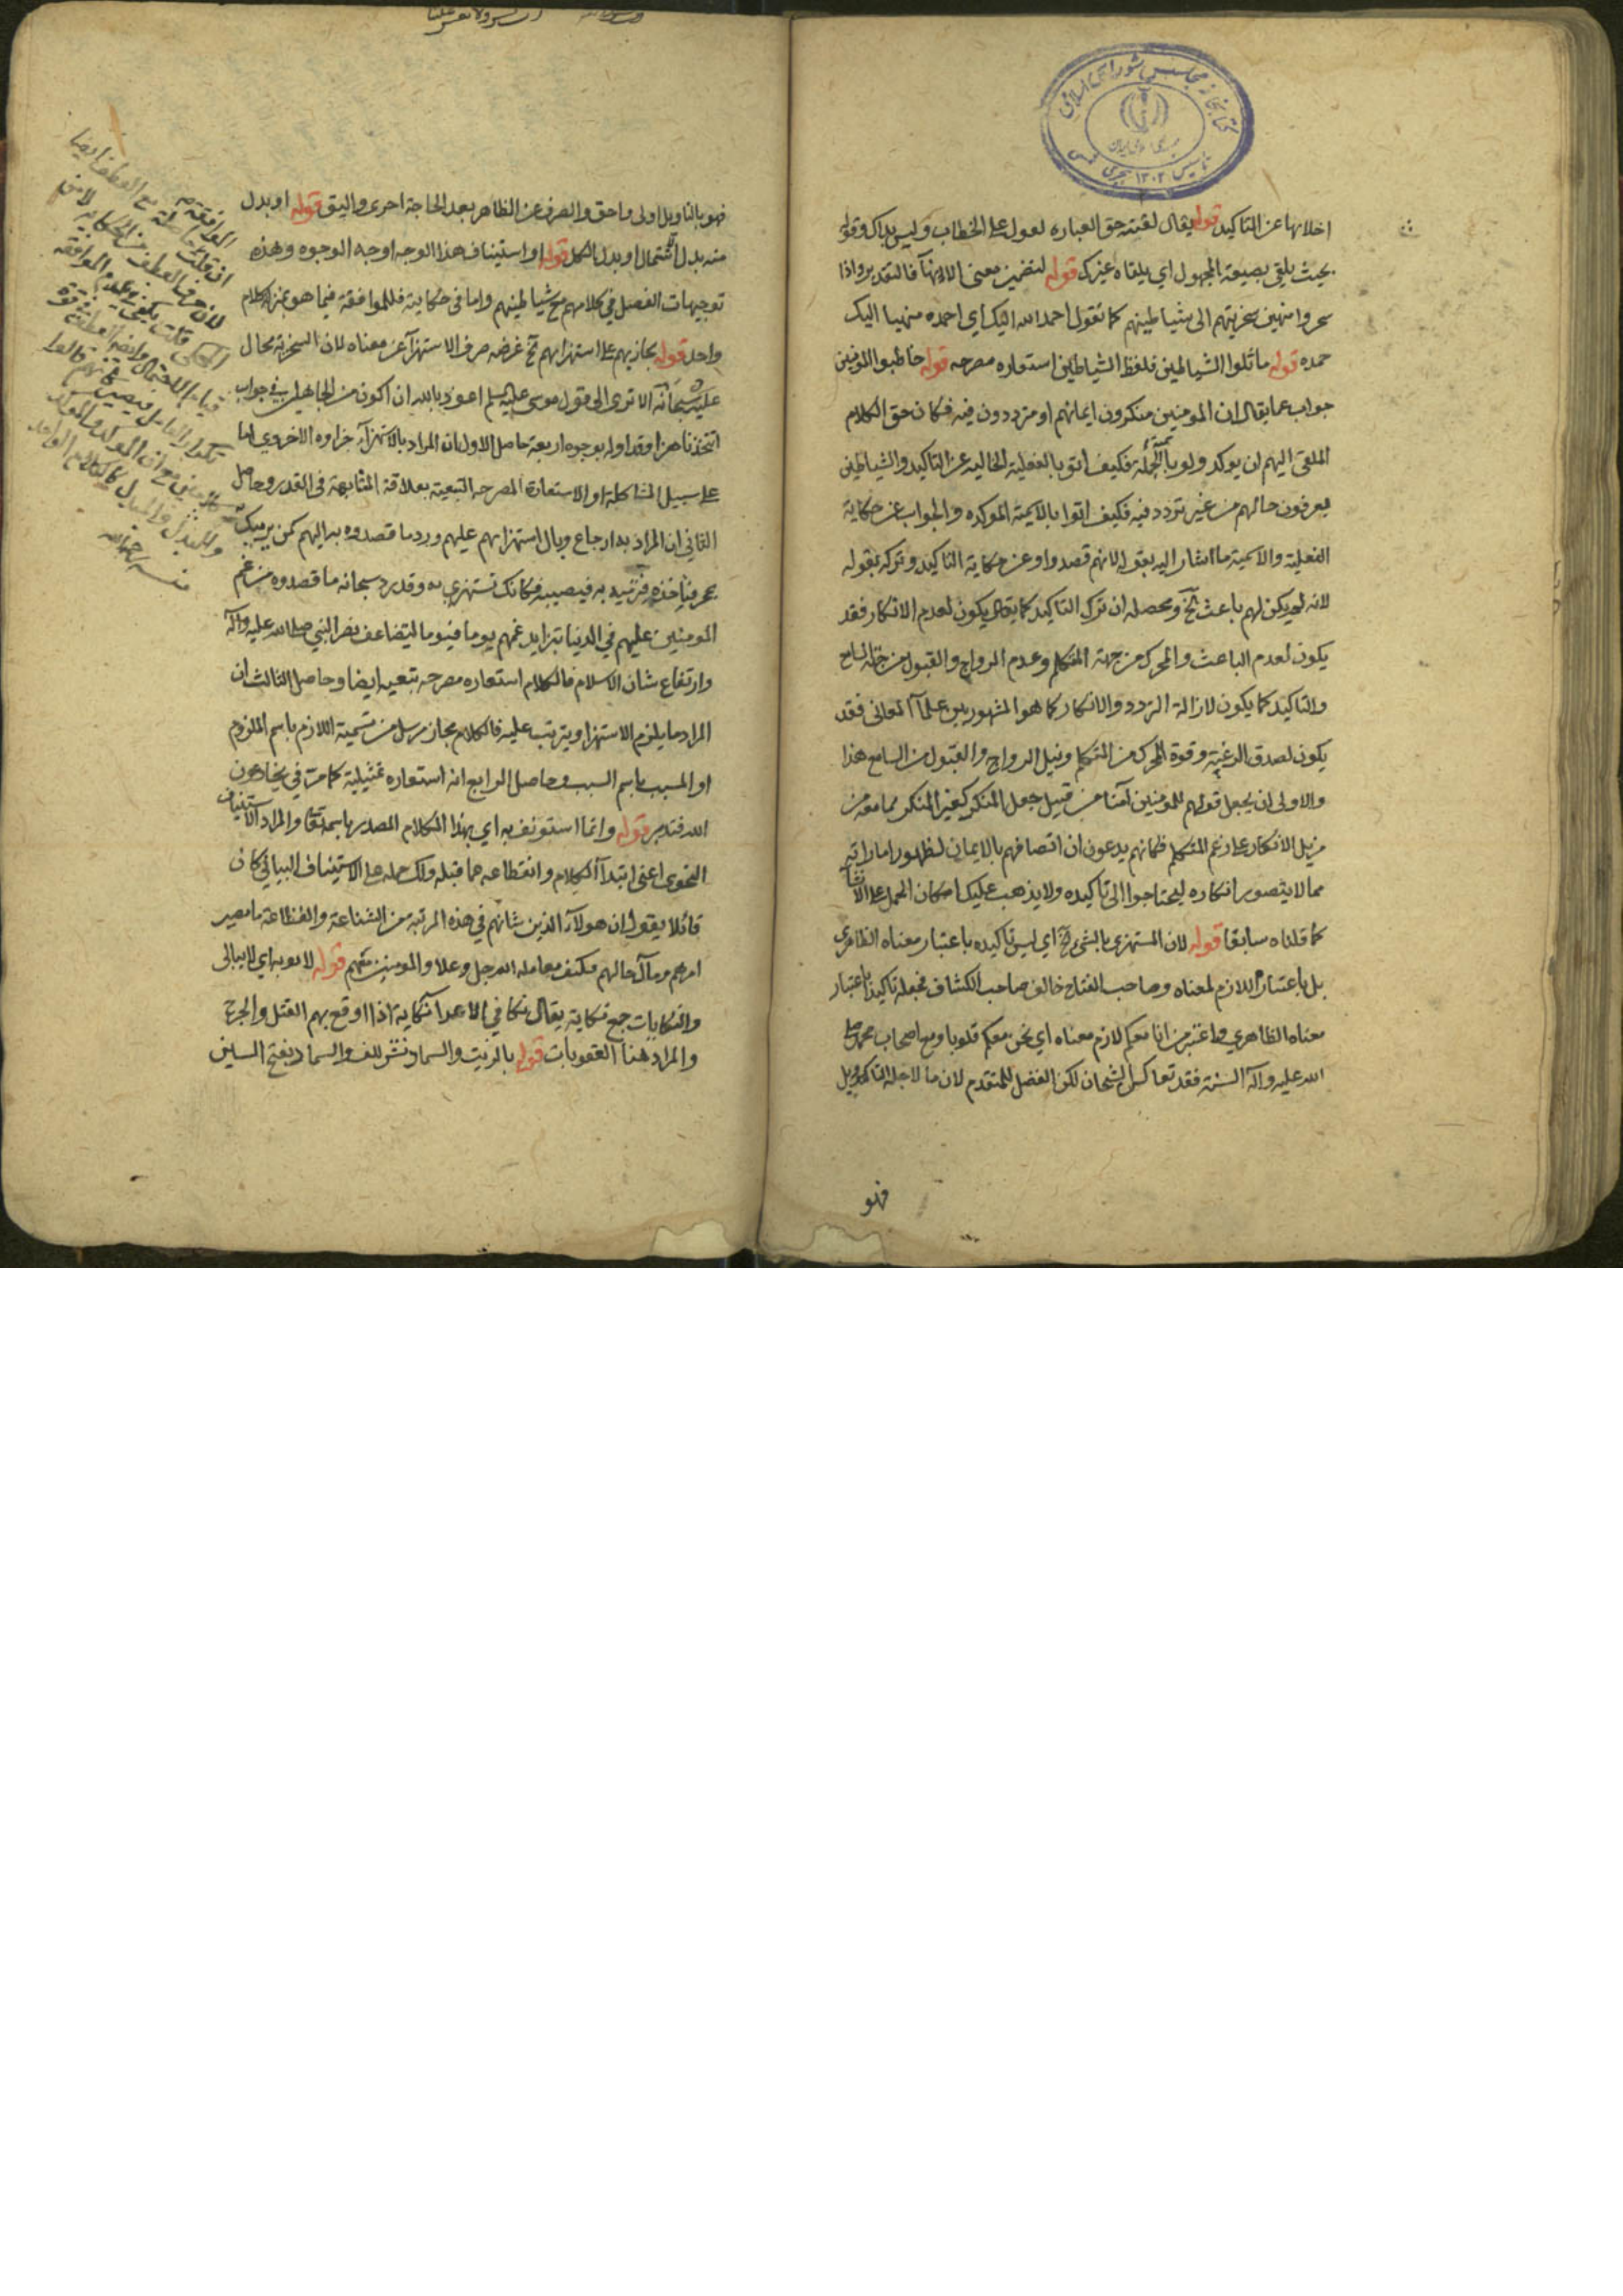 كتابخانه مجلس شورای اسلامی
تاسیس ١٣٠٢ هجری شمسی
اخلائها عن التاكيد قوله يقال لقيته حق العباره لعول على الخطاب وليس بذاك وقوله
بحيث يلقى بصيغة المجهول اي يلقاه غيرك قوله لتضمين معنى الانهآ فالتقدير واذا
سخروا منهين سخريتهم الى شياطينهم كما تقول احمد الله اليك اي احمده منهيا اليك
حمده قوله ماثلوا الشياطين فلفظ الشياطين استعاره مصرحه قوله خاطبوا المومنين
جواب عما يقال ان المومنين منكرون ايمانهم او مترددون فيه فكان حق الكلام
الملقى اليهم ان يوكد ولو بالجمله فكيف اتوا بالفعلية الخاليه عن التاكيد والشياطين
يعرفون حالهم من غير تردد فيه فكيف اتوا بالاسمية الموكده والجواب عن حكاية
الفعلية والاسمية ما اشار اليه بقوله لانهم قصدوا وعن حكاية التاكيد وتركه بقوله
لانه لم يكن لهم باعث الخ ومحصله ان ترك التاكيد كما يكون لعدم الانكار فقد
يكون لعدم الباعث والمحرك من جهة المتكلم وعدم الرواج والقبول من جهة السامع
والتاكيد كما يكون لازالة التردد والانكار كما هو المشهور بين علمآ المعانى فقد
يكون لصدق الرغبة وقوة المحرك من المتكلم ونيل الرواج والقبول من السامع هذا
والاولى ان يجعل قولهم للمومنين آمنا من قبيل جعل المنكر كغير المنكر لما معه من
مزيل الانكار على زعم المتكلم فكانهم يدعون ان اتصافهم بالايمان لظهور اماراته
مما لا يتصور انكاره ليحتاجوا الى تاكيده ولا يذهب عليك امكان الحمل على الانشآ
كما قلناه سابقا قوله لان المستهزي بالشيء الخ اي ليس تاكيده باعتبار معناه الظاهرى
بل باعتبار اللازم لمعناه وصاحب المفتاح خالف صاحب الكشاف فجعله تاكيدا باعتبار
معناه الظاهري واعتبر من انا معكم لازم معناه اي نحن معكم قلوبا ومع اصحاب محمد صلى
الله عليه وآله السنة فقد تعاكس الشيخان لكن الفضل للمتقدم لان ما لاجله التاكيد
فهو
فهو بالتاويل اولى واحق والصرف عن الظاهر بعد الحاجة احرى واليق قوله او بدل
منه بدل اشتمال او بدل الكل قوله او استيناف هذا الوجه اوجه الوجوه وهذه
توجيهات الفصل في كلامهم مع شياطينهم واما فى حكاية فللموافقة فيما هو بمنزلة كلام
واحد قوله يجازيهم على استهزائهم الخ غرضه صرف الاستهزآ عن معناه لان السخرية محال
عليه سبحانه الا ترى الى قول موسى عليه السلم اعوذ بالله ان اكون من الجاهلين في جواب
اتتخذنا هزوا وقد اوله بوجوه اربعة حاصل الاول ان المراد بالاستهزآء جزاوه الاخروي اما
على سبيل المشاكلة او الاستعارة المصرحه التبعية بعلاقة المشابهة فى القدر وحاصل
الثاني ان المراد به ارجاع وبال استهزائهم عليهم ورد ما قصدوه به اليهم كمن يرميك
بحجر فتاخذه فترميه به فيصيبه فكانك تستهزي به وقد رد سبحانه ما قصدوه من غم
المومنين عليهم في الدنيا بتزايد غمهم يوما فيوما لتضاعف نصر النبي صلى الله عليه وآله
وارتفاع شان الاسلام فالكلام استعاره مصرحه تبعيه ايضا وحاصل الثالث ان
المراد ما يلزم الاستهزا ويترتب عليه فالكلام مجاز مرسل من تسمية اللازم باسم الملزوم
او المسبب باسم السبب وحاصل الرابع انه استعاره تمثيلية كما مر في يخادعون
الله فتدبر قوله وانما استونف به اي بهذا الكلام المصدر باسمه تعالى والمراد الاستيناف
النحوى اعنى ابتدآ الكلام وانقطاعه عما قبله ولك حمله على الاستيناف البياني كان
قائلا يقول ان هولآء الذين شانهم في هذه المرتبه من الشناعة والفظاعة ما مصير
امرهم ومآل حالهم فكيف معامله الله جل وعلا والمومنين معهم قوله لا يوبه اي لا يبالى
والنكايات جمع نكاية يقال نكا في الاعدا نكاية اذا اوقع بهم القتل والجرح
والمراد هنا العقوبات قوله بالزيت والسماد نشر للف والسماد بفتح السين
ان قلت
منه رحمه الله